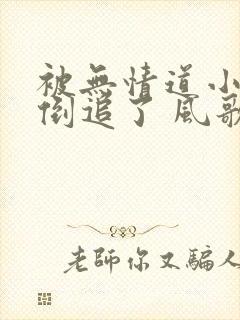 被無情道小
倒追了 風歌
老師你又騙人